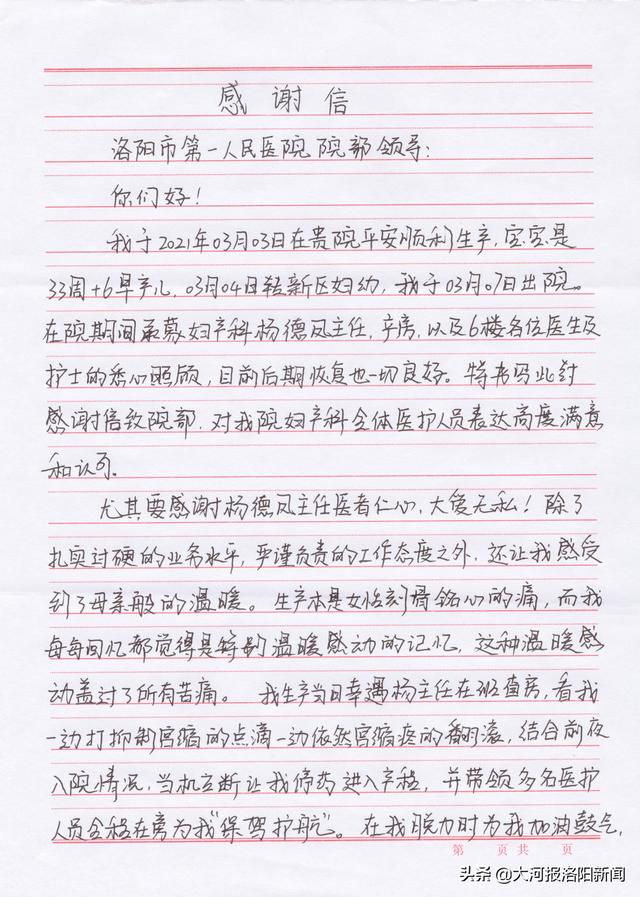 感谢信
洛阳市第一人民医院院部领导:
你们好!
我于2021年03月03日在贵院平安顺利生产,宝宝是
33周+6早产儿,03月04日转新区妇幼,我于03月07日出院。
在院期间承蒙妇产科杨德凤主任,产房,以及6楼各位医生及
护士的悉心照顾,目前后期恢复也一切良好。特书写此封
感谢信致院部,对我院妇产科全体医护人员表达高度满意
和认可。
尤其要感谢杨德凤主任医者仁心,大爱无私!除了
扎实过硬的业务水平,严谨负责的工作态度之外,还让我感受
到了母亲般的温暖。生产本是女性刻骨铭心的痛,而我
每每回忆都觉得是特别温暖感动的记忆,这种温暖感
动盖过了所有苦痛。我生产当日幸遇杨主任在班查房,看我
一边打抑制宫缩的点滴一边依然宫缩疼的翻滚,结合前夜
入院情况,当机立断让我停药进入产程,并带领多名医护
人员全程在旁为我“保驾护航”。在我脱力时为我加油鼓气,
第 页共 页
头条@大河报洛阳新闻